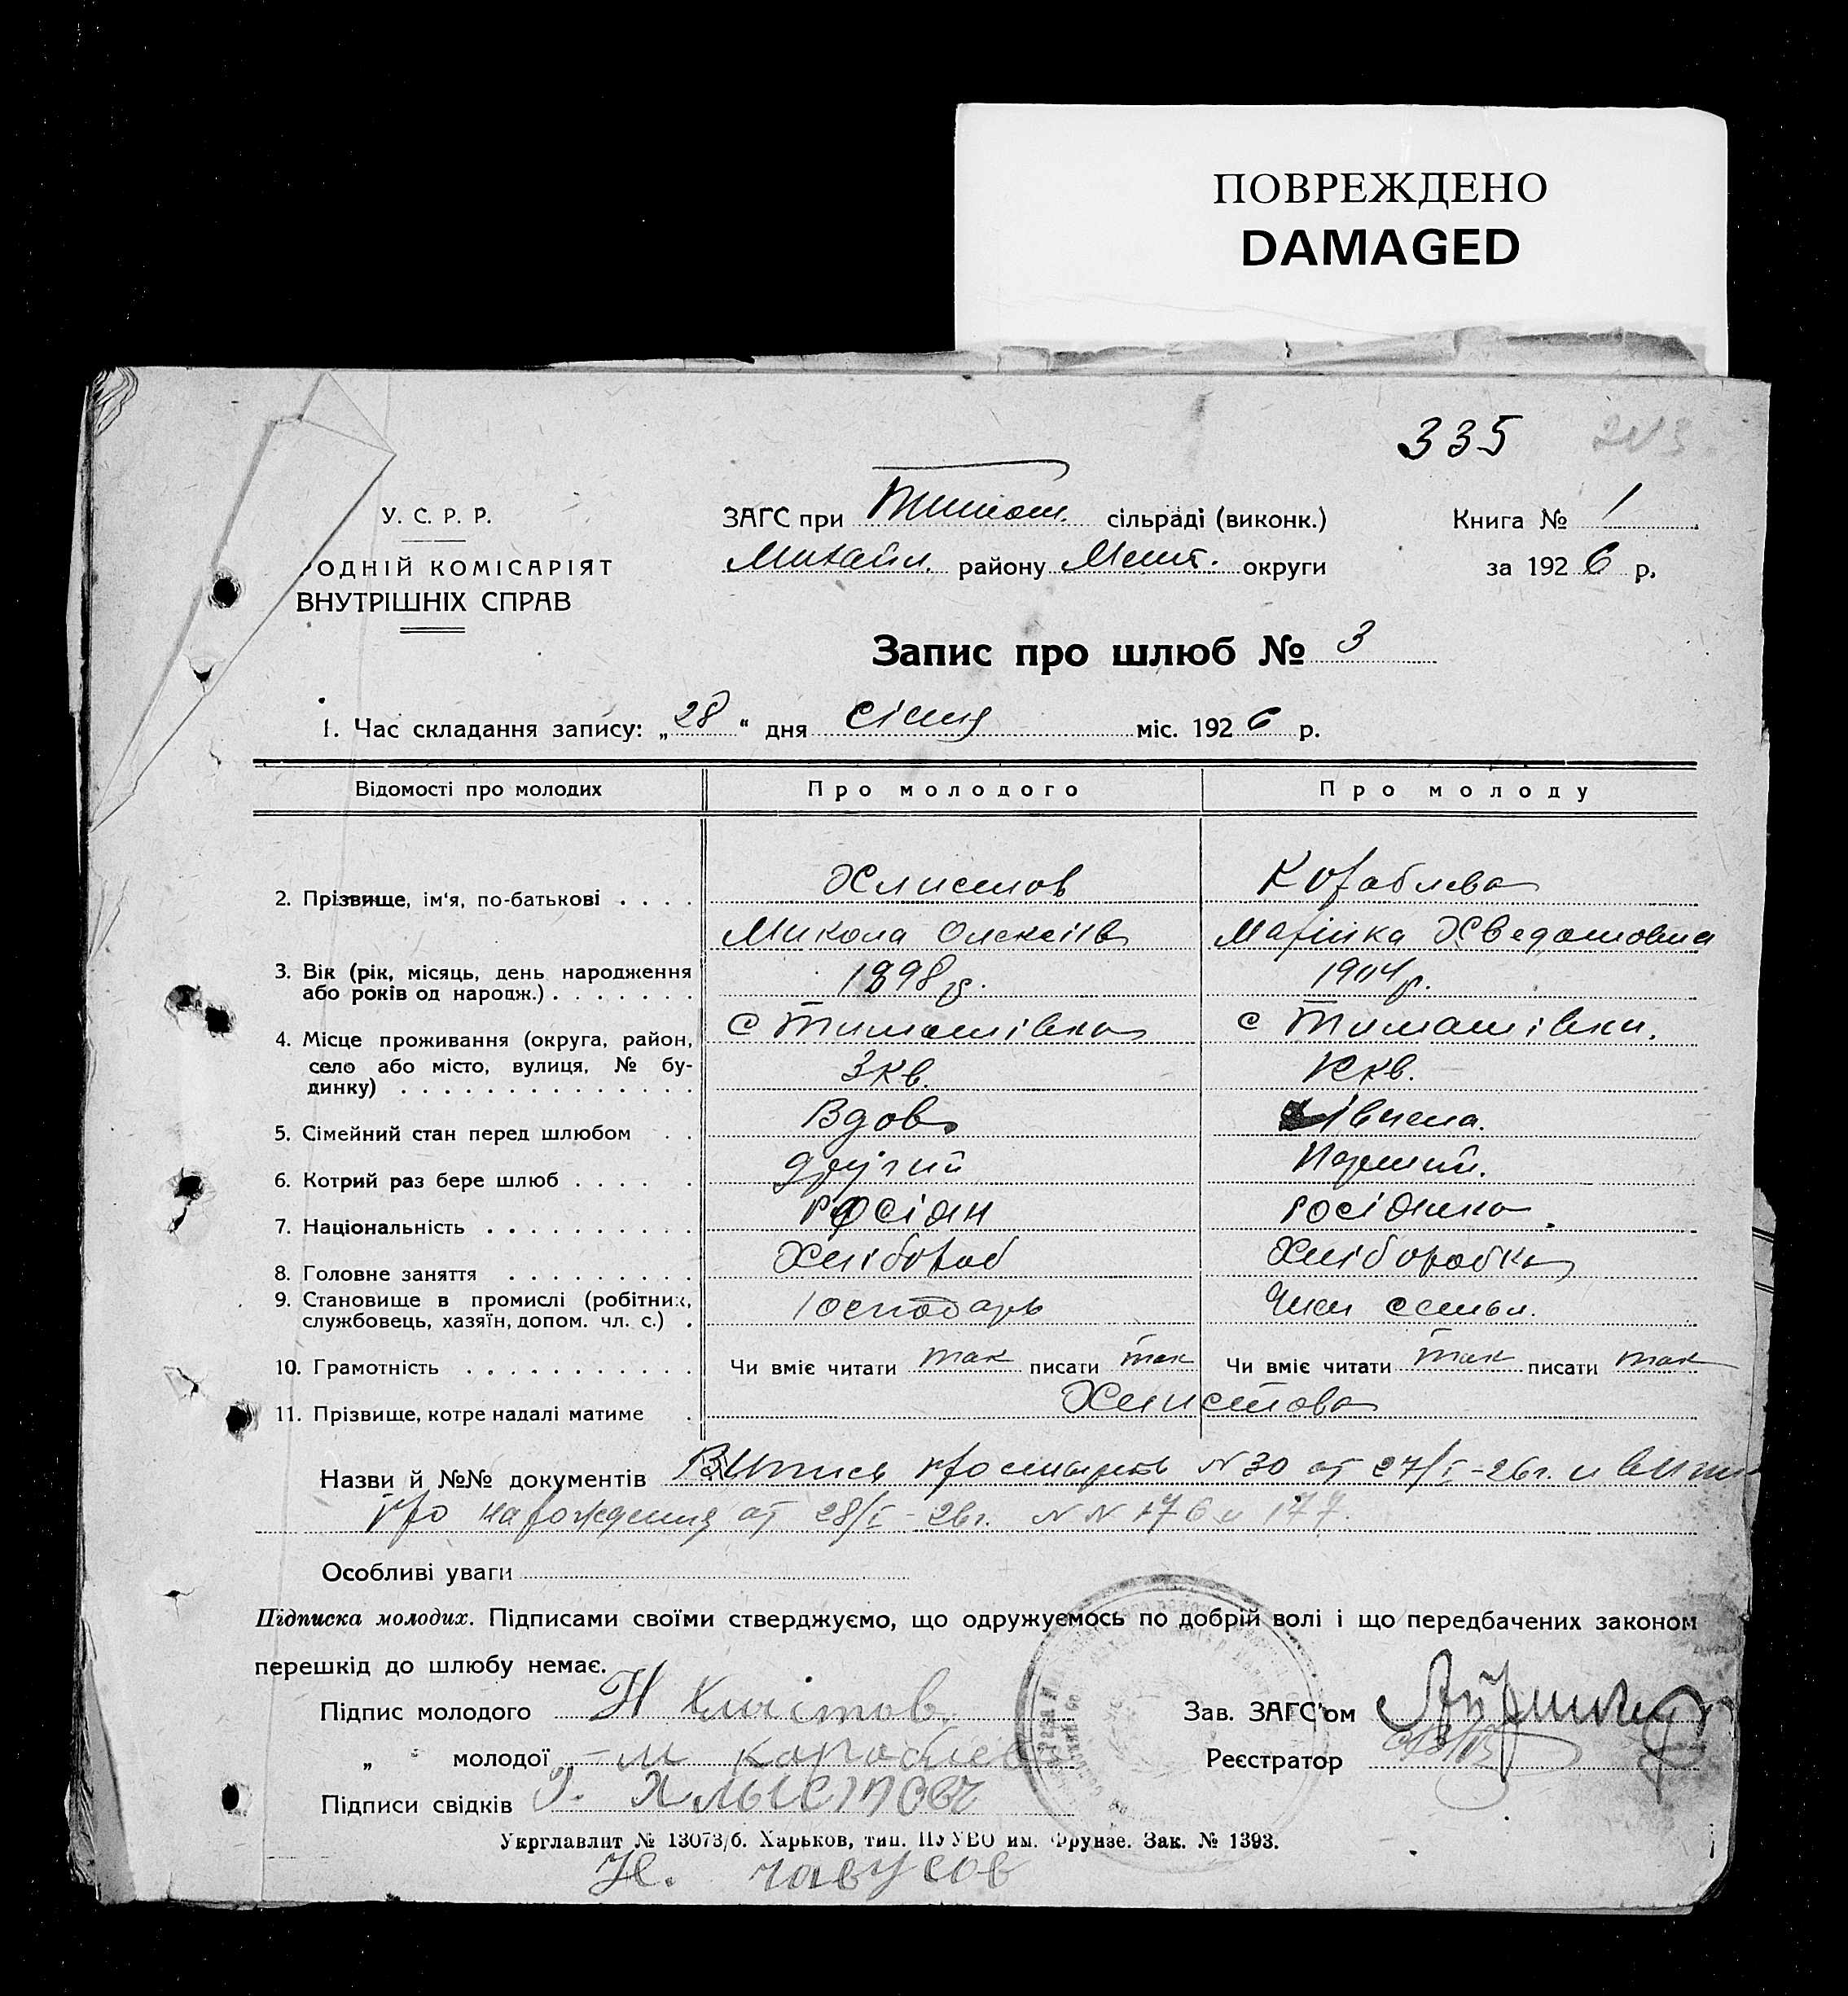 ПОВРЕЖДЕНО
DAMAGED
335
У. С. Р. Р.
ОДНІЙ КОМІСАРІЯТ
ВНУТРІШНІХ СПРАВ
ЗАГС при Тимош. сільраді (виконк.)
Михайл. району Меліт. округи
Книга № 1
за 1926 р.
Запис про шлюб № 3
1. Час складання запису: „28“ дня січня міс. 1926 р.
Відомості про молодих Про молодого Про молоду
2. Прізвище, ім'я, по-батькові . . . . Хлистов Кораблева
Микола Олексіїв Марійка Хведотовна
3. Вік (рік, місяць, день народження або років од народж.) . . . . . . . 1898 р. 1904 р.
4. Місце проживання (округа, район, село або місто, вулиця, № будинку) . . . . . . . . . . . . . . с Тимошівка с Тимошівки.
3 кв. кв.
5. Сімейний стан перед шлюбом . . Вдов Дівчена.
6. Котрий раз бере шлюб . . . . . другий Перший.
7. Національність . . . . . . . . . . росіян росіянка.
8. Головне заняття . . . . . . . . . Хлібороб Хліборобка
9. Становище в промислі (робітник, службовець, хазяїн, допом. чл. с.) . Господарь Член семьи.
10. Грамотність . . . . . . . . . . . Чи вміє читати так писати так Чи вміє читати так писати так
11. Прізвище, котре надалі матиме . Хлистова
Назви й №№ документів Випись про смерть N 30 от 27/I-26г. и випи
про нарождения от 28/I-26г. N N 176 и 177.
Особливі уваги
Підписка молодих. Підписами своїми стверджуємо, що одружуємось по добрій волі і що передбачених законом
перешкід до шлюбу немає.
Підпис молодого Н Хлистов
„ „ молодої М Караблева
Підписи свідків Хлыстов
Зав. ЗАГС'ом
Реєстратор
Укрглавлит № 13073/б. Харьков, тип. ПУУВО им. Фрунзе. Зак. № 1393.